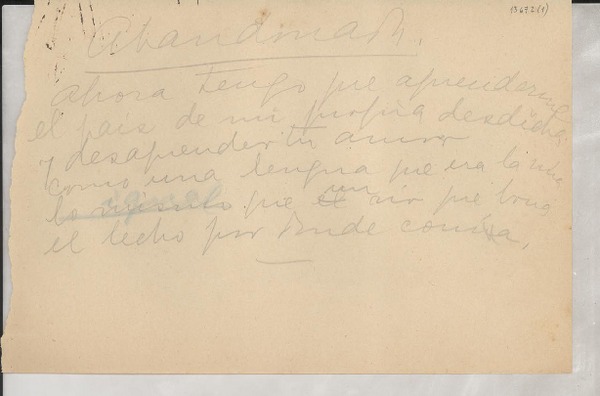 13672(1)
Abandonada.
Ahora tengo que aprenderme
el país de mi propia desdicha
y desaprender tu amor
como una lengua que era la mía,
lo mismo que un río que
el lecho por donde corría,